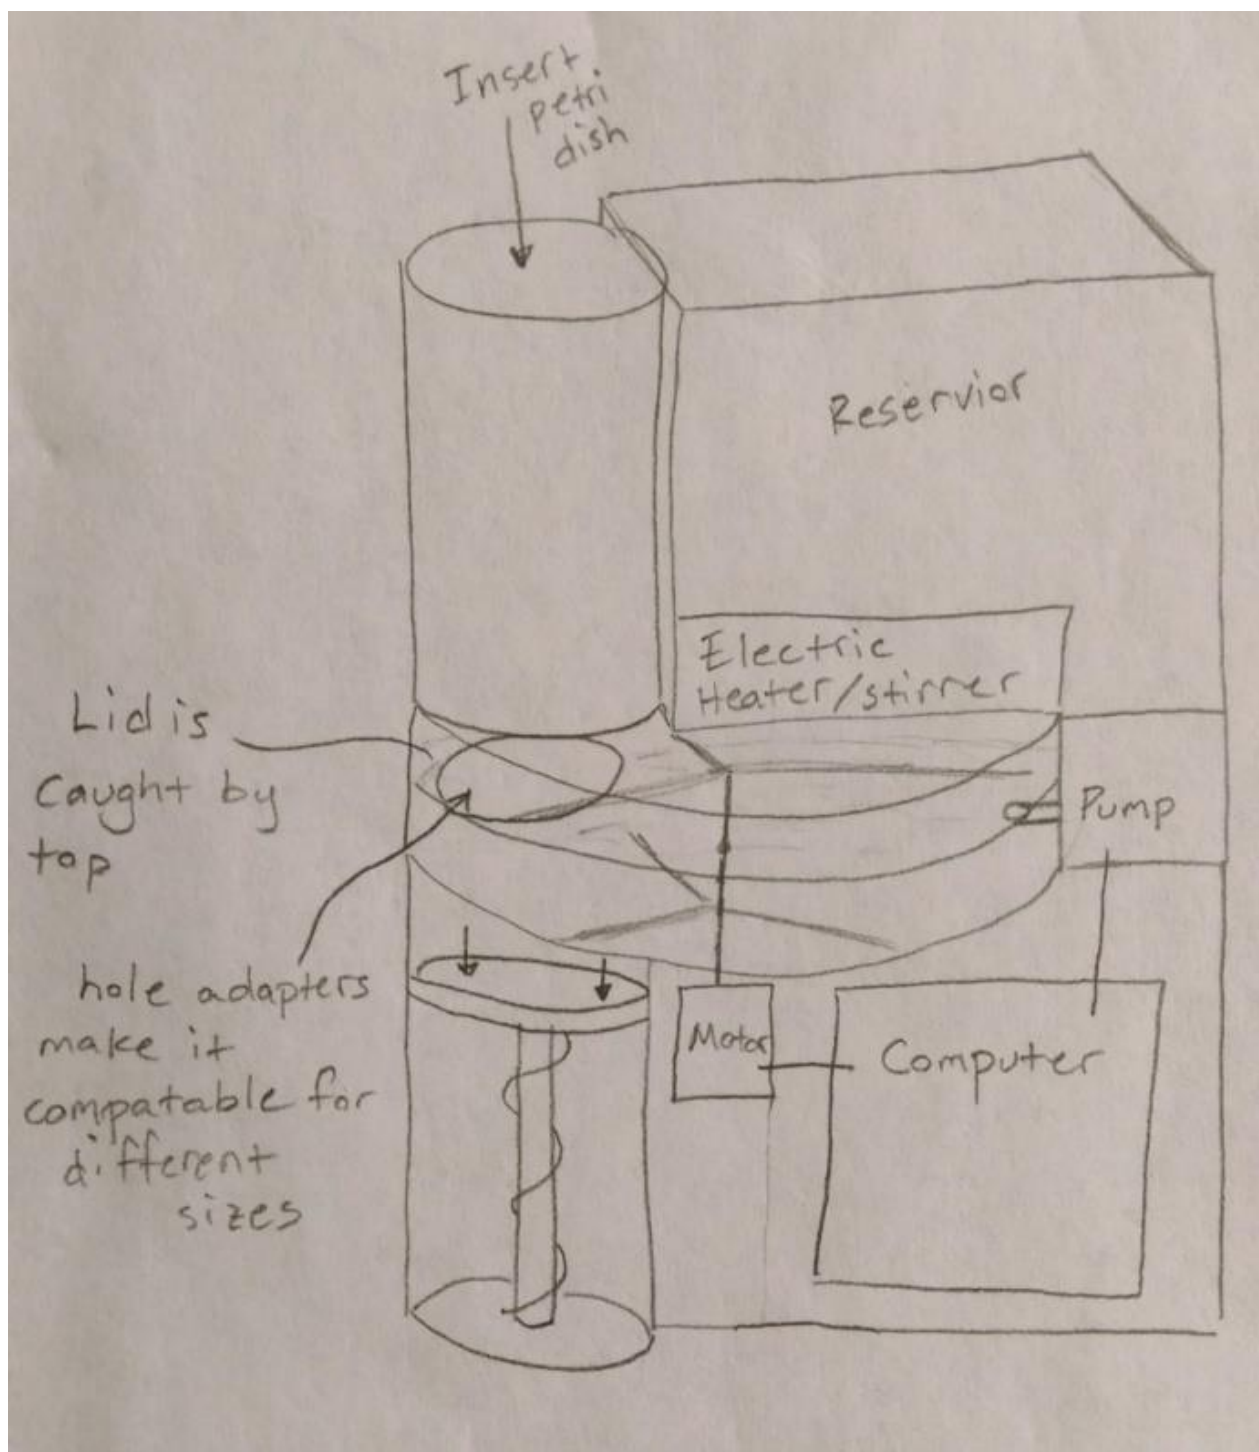 Insert
petri
dish
Reservior
Electric
Heater/stirrer
Lid is
Caught by
top
Pump
hole adapters
make it
compatable for
different
sizes
Motor
Computer